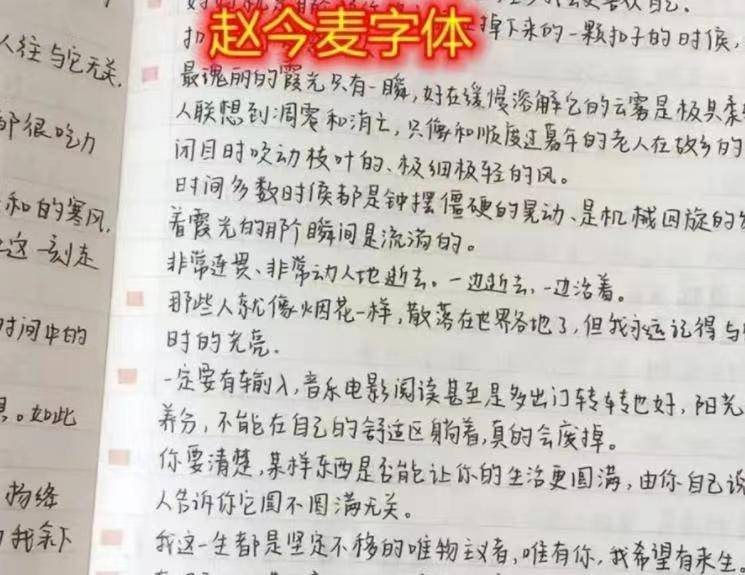 赵今麦字体
人往与它无关,
都很吃力
和的寒风,
这一刻走
时间中的
。如此
杨绛
我余下
掉下来的一颗扣子的时候,
最瑰丽的霞光只有一瞬,好在缓慢溶解它的云雾是极具柔
人联想到凋零和消亡,只像和顺度过暮年的老人在故乡的
闭目时吹动枝叶的、极细极轻的风。
时间多数时候都是钟摆僵硬的晃动、是机械回旋的
着霞光的那阶瞬间是流淌的。
非常连贯、非常动人地逝去。一边逝去,一边活着。
那些人就像烟花一样,散落在世界各地了,但我永远记得与
时的光亮.
一定要有输入,音乐电影阅读甚至是多出门转转也好,阳光
养分,不能在自己的舒适区躺着,真的会废掉。
你要清楚,某样东西是否能让你的生活更圆满,由你自己说
人告诉你它圆不圆满无关。
我这一生都是坚定不移的唯物主义者,唯有你,我希望有来生。